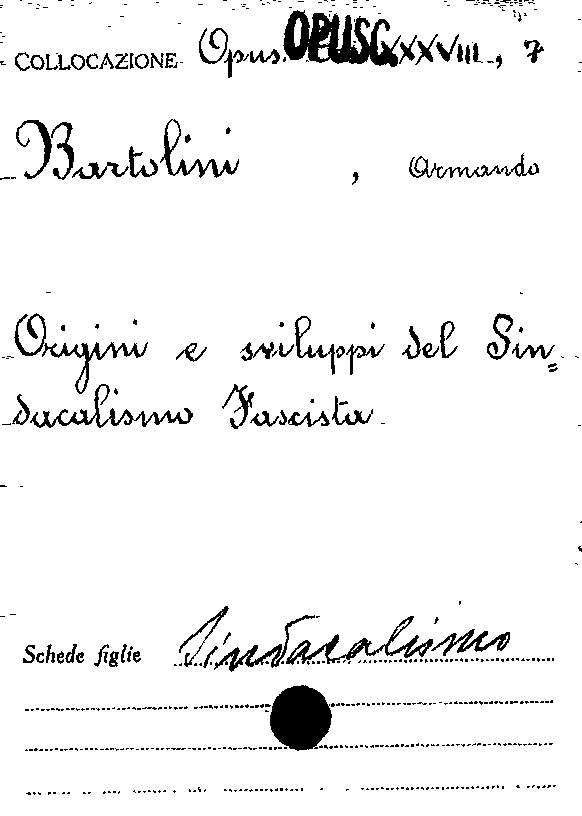 COLLOCAZIONE Opus. OPUSC. XXXVIII, 7
Bartolini, Armando
Origini e sviluppi del Sin=
dacalismo Fascista
Schede figlie Sindacalismo